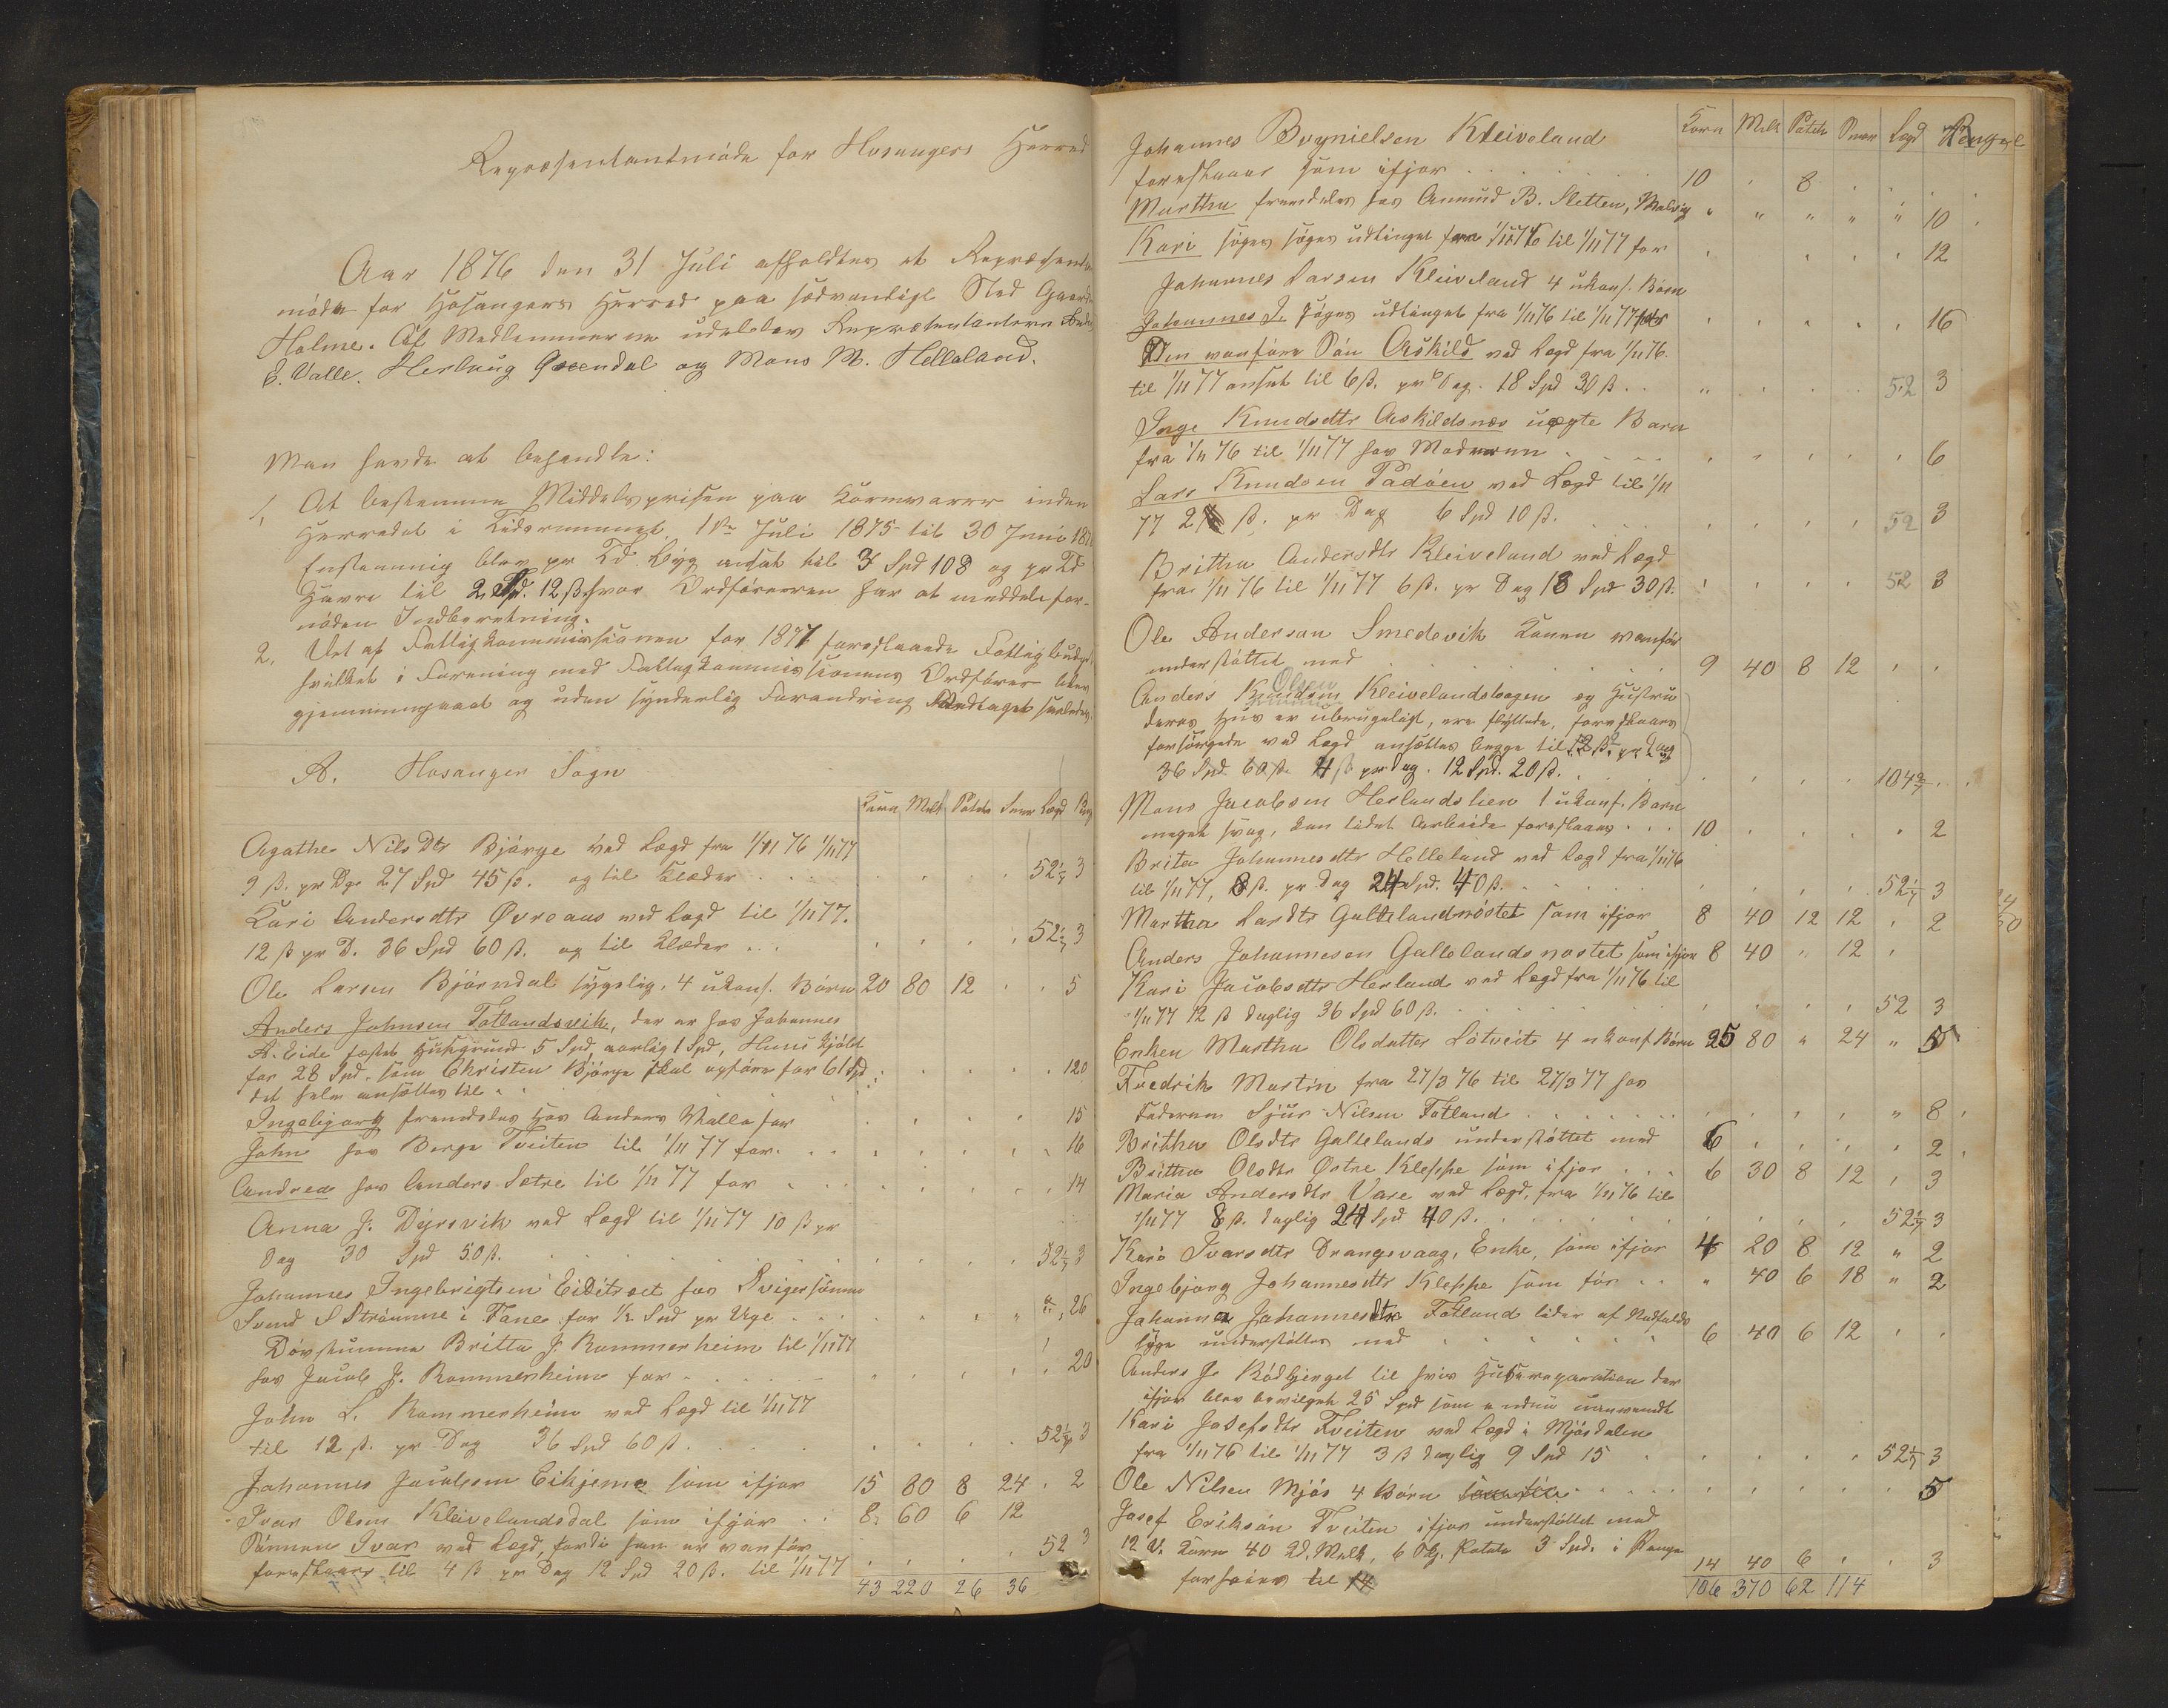 Repræsentantmøde for Hosangers Herred
Aar 1876 den 31 Juli afholdtes et Repræsentant
møde for Hosangers Herred paa sædvanligt Sted Gaarden
Holme. Af Medlemmerne udeblev Repræsentanterne
E. Valle. Herlaug og Mons M. Helleland.
Man havde at behandle:
1, At bestemme Middelsprisen paa Kornvarer inden
Herredet i Tidsrummet 1ste Juli 1875 til 30 Juni 187
Enstemmig blev pr Td. Byg ansat til 3 Spd 108 og pr Td
Havre til 2 Spd. 12 ß hvor Ordføreren har at meddele for-
nøden Indberetning.
2, Det af Fattigkommissionen for 1877 foreslaaede Fattigbudget
hvilket i Forening med Fattigkommissionens Ordfører blev
gjennemgaaet og uden synderlig Forandring saaledes,
A. Hosanger Sogn
Korn Melk Potet Smør Lægd
Agathe Nils Dtr Bjørge ved Lægd fra 1/11 76 1/11 77
9 ß. pr Dg 27 Spd 45 ß. og til Klæder . . . 52 1/7 3
Kari Andersdtr Øvreaas ved Lægd til 1/11 77.
12 ß pr D. 36 Spd 60 ß. og til Klæder . . . 52 1/7 3
Ole Larsen Bjørndal sygelig, 4 ukonf. Børn 20 80 12 5
Anders Johnsen Totlandsvik, der er hos Johannes
A. Eide fæstet Husgrund 5 Spd aarlig 1 Spd, Huus kjøbt
for 28 Spd. som Christen Bjørge skal opføre for 61 Spd
det hele ansættes til . 120
Ingebjorg fremdeles hos Anders Valle for 15
John hos Børge Tveiten til 1/11 77 for . . 16
Andrea hos Anders Sætre til 1/11 77 for . . 14
Anna J. Dyrsvik ved Lægd til 1/11 77 10 ß pr
Dag 30 Spd 50 ß. 52 1/7 3
Johannes Ingebrigtsen Eiditræt hos Svigersønnen
Svend S Strømme i Fane for 1/2 Spd pr Uge . . 26
Døvstumme Britta J. Rommerheim til 1/11 77
hos Jacob J. Rommerheim for . . 20
John L. Rommerheim ved Lægd til 1/11 77
til 12 ß. pr Dag 36 Spd 60 ß. . . 52 1/7 3
Johannes Jacobsen Eikjeme som ifjor 15 80 8 24 . 2
Ivar Olsen Kleivelandsdal som ifjor . . 8 60 6 12
Sønnen Ivar ved Lægd, fordi han er vanfør 52 3
foreslaaes til 4 ß pr Dag 12 Spd 20 ß. til 1/11 77
43 220 26 36
Korn Melk Potet Smør Lægd Penge
Johannes Brynielsen Kleiveland
foreslaaes som ifjor . . 10 . 8
Martha fremdeles hos Amund B. Sletten, " " " " " 10
Kari søges udtinget fra 1/11 76 til 1/11 77 for 12
Johannes Larsen Kleiveland 4 ukonf. Børn
Johannes J. søges udtinget fra 1/11 76 til 1/11 77 16
Den vanføre Søn Askild ved Lægd fra 1/11 76.
til 1/11 77 ansat til 6 ß. pr Dag. 18 Spd 30 ß . . 52 3
Inge Knudsdtr Askildsnes uægte Barn
fra 1/11 76 til 1/11 77 hos Moderen . . 6
Lars Knudsen Padøen ved Lægd til 1/11
77 2 ß. pr Dag 6 Spd 10 ß. 52 3
Britha Andersdtr Kleiveland ved Lægd
fra 1/11 76 til 1/11 77 6 ß. pr Dag 18 Spd 30 ß. 52 3
Ole Anderson Smedsvik Konen vanfør
understøttet med . . 9 40 8 12
Olsen
Anders Knudsen Kleivelandshagen og Hustru
deres Hus er ubrugeligt, ere flyttede, foreslaaes
forsørgede ved Lægd ansættes begge til 12 ß pr Dag
36 Spd. 60 ß. 4 ß pr Dag. 12 Spd. 20 ß. 104 2/7
Mons Jacobsen Herlandslien 1 ukonf. Barn
meget svag, kan lidet Arbeide foreslaaes . . . 10 2
Brita Johannesdtr Helleland ved Lægd fra 1/11 76
til 1/11 77, 8 ß. pr Dag 24 Spd. 40 ß. . . 52 1/7 3
Martha Larsdtr Galtelandnøstet som ifjor 8 40 12 12 . 2
Anders Johannesen Gallelandsnostet som ifjor 8 40 " 12
Kari Jacobsdtr Herland ved Lægd fra 1/11 76 til
1/11 77 12 ß daglig 36 Spd 60 ß. . . 52 3
Enken Martha Olsdatter Løtveit 4 ukonf Børn 25 80 " 24 " 5
Fredrik Martin fra 27/3 76 til 27/3 77 hos
Faderen Sjur Nilsen Totland . . " 8
Britha Olsdtr Galtelands understøttet med 6 2
Britha Olsdtr Østre Kleppe som ifjor . . . 6 30 8 12 3
Maria Andersdtr Vare ved Lægd, fra 1/11 76 til
1/11 77 8 ß. daglig 24 Spd 40 ß. . . 52 1/7 3
Kari Ivarsdtr Drangsvaag, Enke, som ifjor 4 20 8 12 " 2
Ingebjorg Johannesdtr Kleppe som før . . " 40 6 18 " 2
Johanna Johannesdtr Totland lider af Nedfalds
syge understøttes med 6 40 6 12
Anders J. Rødbjerget til hvis Husreparation der
ifjor blev bevilget 25 Spd som endnu uanvendt
Kari Josefsdtr Tveiten ved Lægd i Mjøsdalen
fra 1/11 76 til 1/11 77 3 ß daglig 9 Spd 15 52 1/7 3
Ole Nilsen Mjøs 4 Børn som før . . 5
Josef Eriksøn Tveiten ifjor understøttet med
12 Korn 40 Melk, 6 Potet 3 Spd. i Penge
14 40 6 . . 3
til 14
106 370 62 114